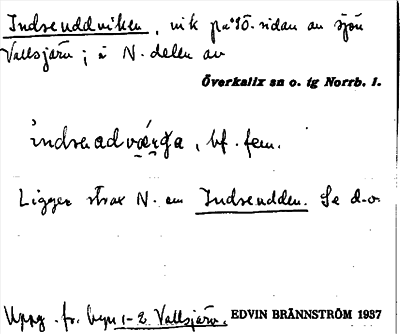 Indreuddviken, vik på Ö. sidan av sjön
Vallsjärv; i N. delen av
Överkalix sn o. tg Norrb. l.
indreadvärga, bf. fem.
Ligger strax N. om Indreudden. Se d.o.
Uppg. fr. byn 1-2 Vallsjärv. EDVIN BRÄNNSTRÖM 1937